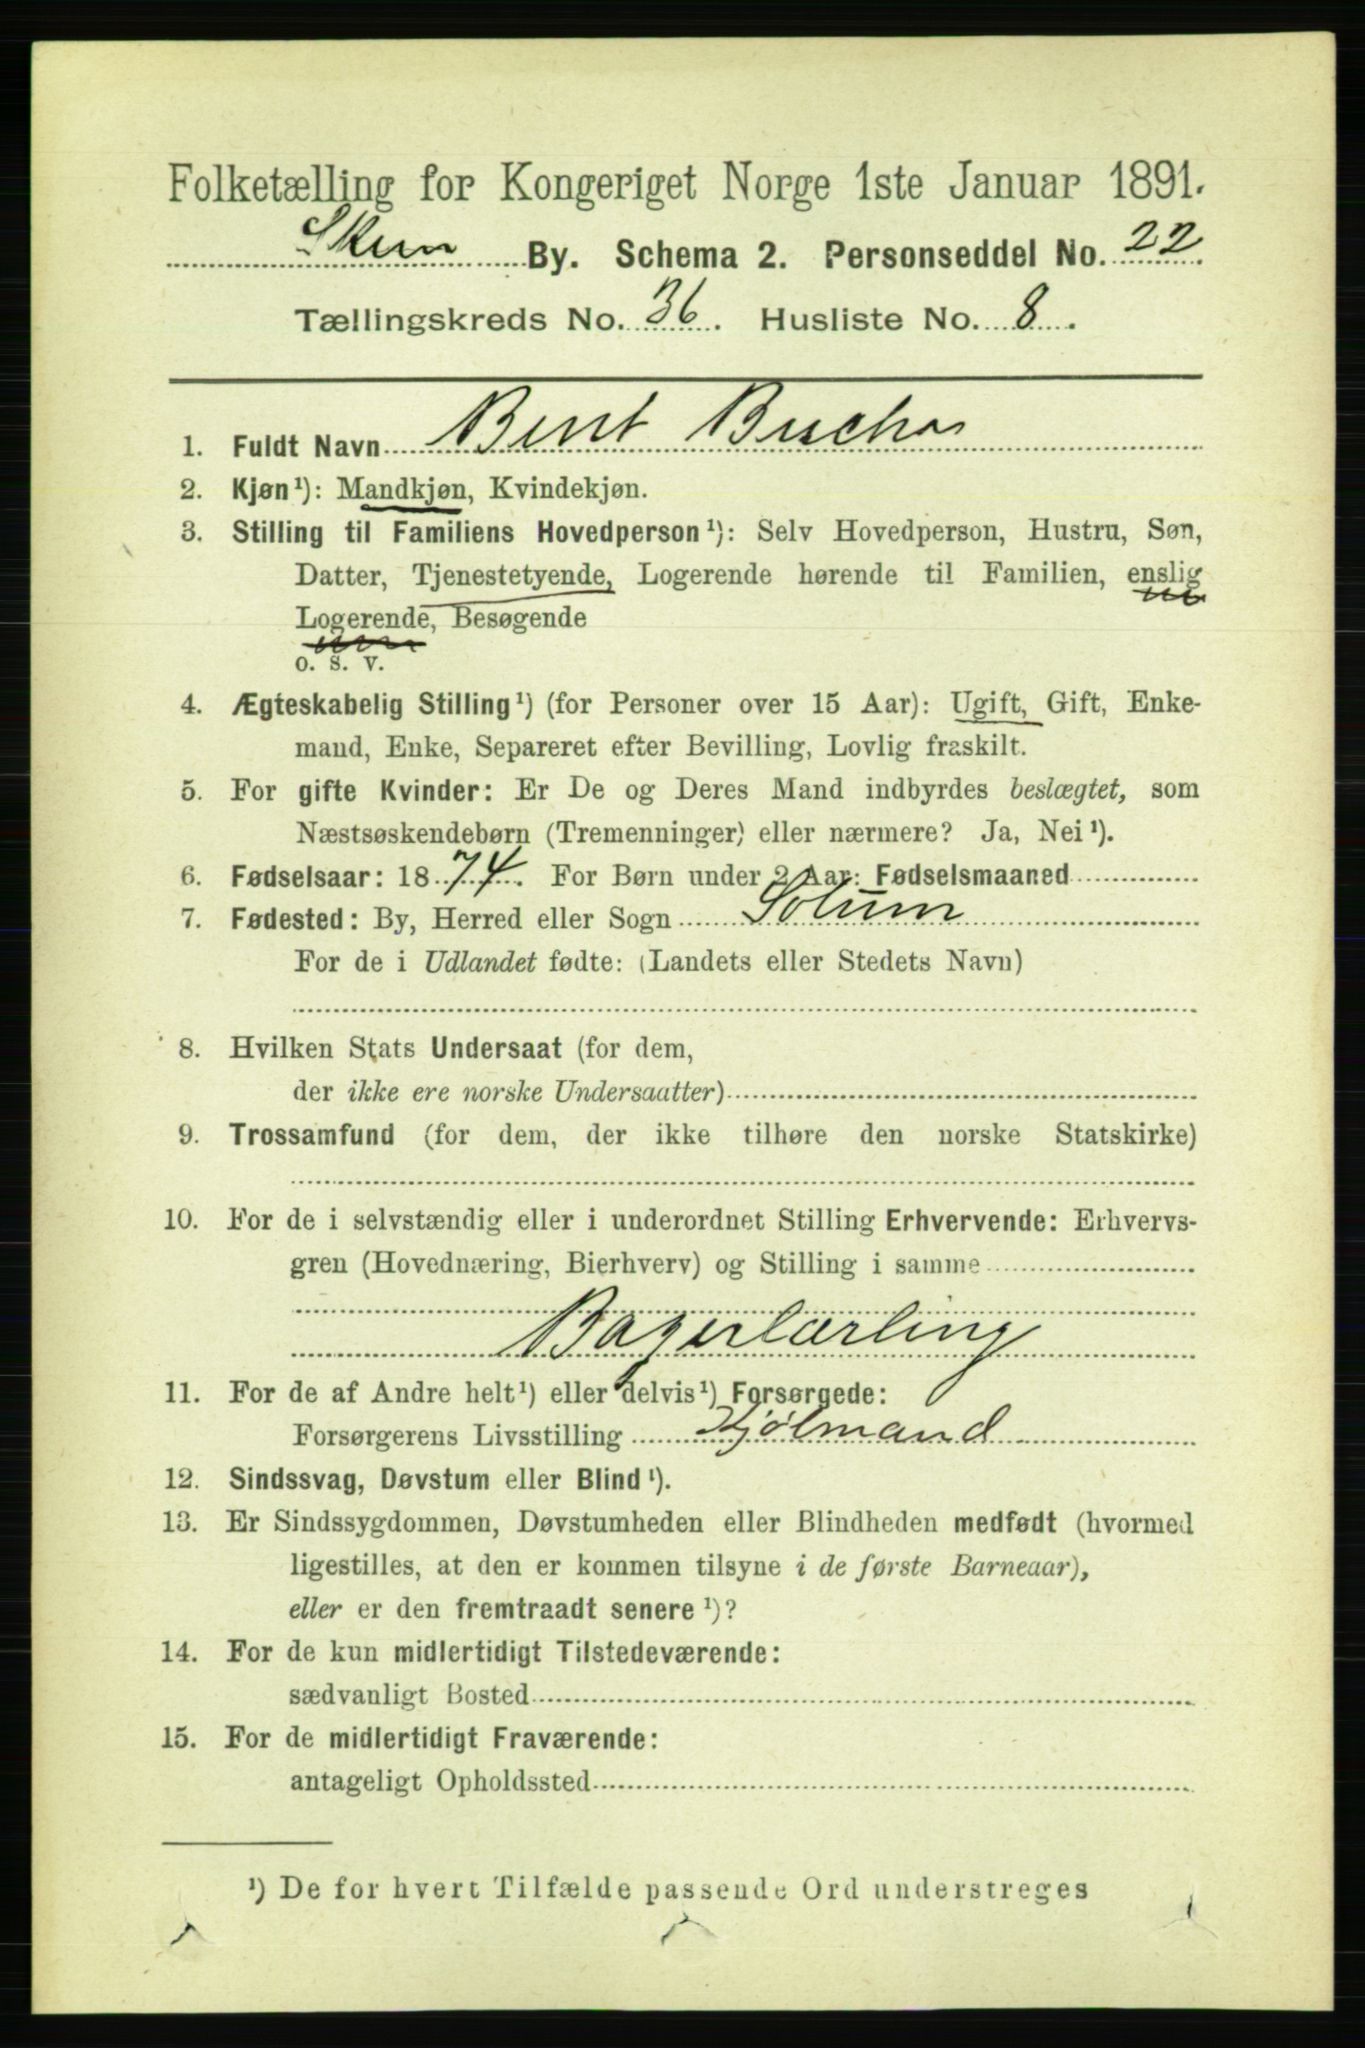 Folketælling for Kongeriget Norge 1ste Januar 1891.
Skien By. Schema 2. Personseddel No. 22.
Tællingskreds No. 36. Husliste No. 8.
1. Fuldt Navn Bent Bucha
2. Kjøn¹): Mandkjøn, Kvindekjøn.
3. Stilling til Familiens Hovedperson¹): Selv Hovedperson, Hustru, Søn,
Datter, Tjenestetyende, Logerende hørende til Familien, enslig
Logerende, Besøgende
o. s. v.
4. Ægteskabelig Stilling¹) (for Personer over 15 Aar): Ugift, Gift, Enke-
mand, Enke, Separeret efter Bevilling, Lovlig fraskilt.
5. For gifte Kvinder: Er De og Deres Mand indbyrdes beslægtet, som
Næstsøskendebørn (Tremenninger) eller nærmere? Ja, Nei¹).
6. Fødselsaar: 1874. For Børn under 2 Aar: Fødselsmaaned
7. Fødested: By, Herred eller Sogn Solum
For de i Udlandet fødte: (Landets eller Stedets Navn)
8. Hvilken Stats Undersaat (for dem,
der ikke ere norske Undersaatter)
9. Trossamfund (for dem, der ikke tilhøre den norske Statskirke)
10. For de i selvstændig eller i underordnet Stilling Erhvervende: Erhvervs-
gren (Hovednæring, Bierhverv) og Stilling i samme
Bagerlærling
11. For de af Andre helt¹) eller delvis¹) Forsørgede:
Forsørgerens Livsstilling Kjølmand
12. Sindssvag, Døvstum eller Blind¹).
13. Er Sindssygdommen, Døvstumheden eller Blindheden medfødt (hvormed
ligestilles, at den er kommen tilsyne i de første Barneaar),
eller er den fremtraadt senere¹)?
14. For de kun midlertidigt Tilstedeværende:
sædvanligt Bosted
15. For de midlertidigt Fraværende:
antageligt Opholdssted
¹) De for hvert Tilfælde passende Ord understreges